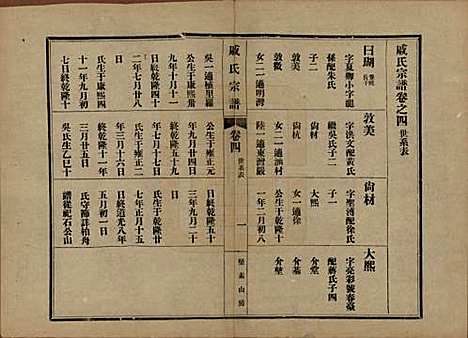 戚氏宗譜卷之四 世系表
曰瑚
字夏卿小字龍
孫配朱氏
子二
敦美
敦徽
女二一適明灣
敦美
字洪文配黃氏
繼吳氏子二
尙材
尙杭
女二一適涵村
陸一適東灣嚴
尙材
字聖濤配徐氏
子一
大熙
女一適徐
公生于乾隆十
一年二月初八
大熙
字亮彩號春臺
配蔣氏子四
介堂
介基
介堃
戚氏宗譜
卷四
世系表
一
吳一適植里羅
公生于康熙卅
九年十月十一
日終乾隆四十
二年七月廿八
十一年九月初
七日終乾隆十
公生于雍正元
年九月廿四
日終乾隆五十九
年三月十六日
氏生于雍正二
年三月廿五日
吳氏生乙巳十
三年九月二十
氏生于乾隆廿
七年正月十五
日終道光八年
五月初一日
氏守節註柏舟
譜從祀石公山